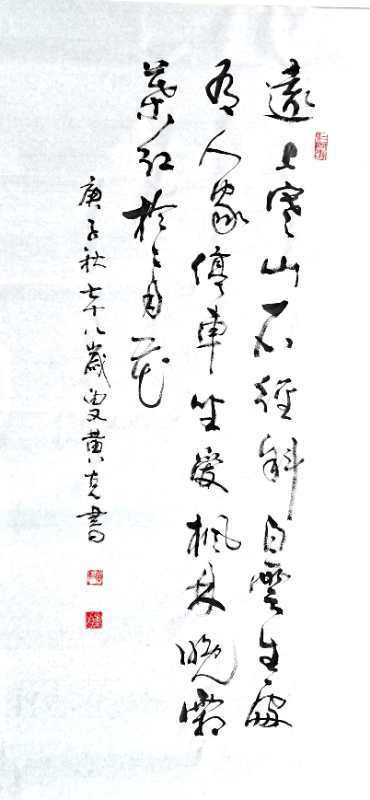 遠上寒山石徑斜白雲生處
有人家停車坐愛楓林晚霜
葉紅於二月花
庚子秋七十八歲叟黃克書